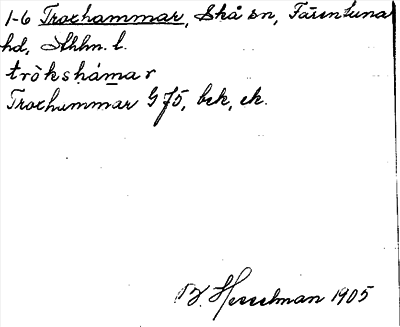 1-6 Troxhammar, Skå sn, Färentuna
hd, Sthlm. l.
tròkshámar
Troxhummar G J5, bek, ek.
B. Hesselman 1905